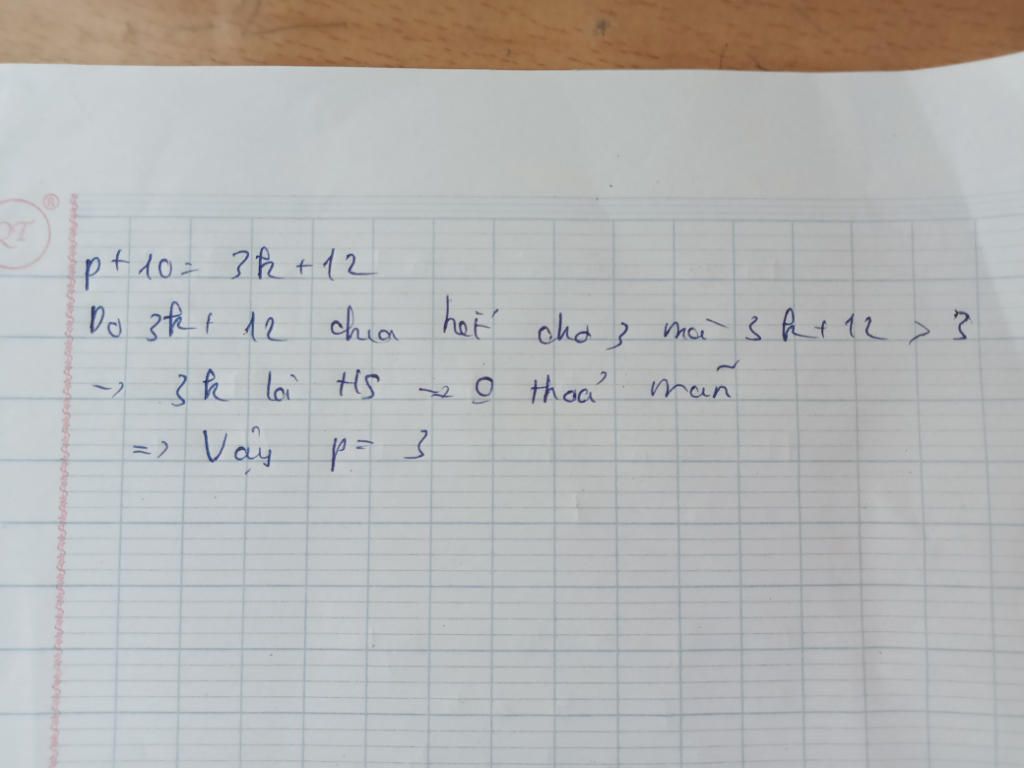 p + 10 = 3k + 12
Do 3k + 12 chia hết cho 3 mà 3k + 12 > 3
→ 3k là HS → 0 thoả mãn
=> Vậy p = 3